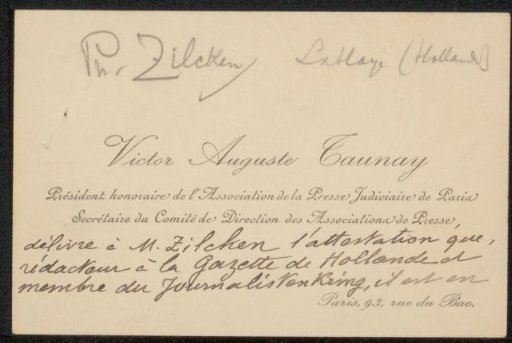 Ph. Zilcken LaHaye (Holland)
Victor Auguste Taunay
Président honoraire de l'Association de la Presse Judiciaire de Paris
Secrétaire du Comité de Direction des Associations de Presse,
délivre à M. Zilcken l'attestation que,
rédacteur à la Gazette de Hollande et
membre du Journalistenkring, il est en
Paris, 93, rue du Bac.